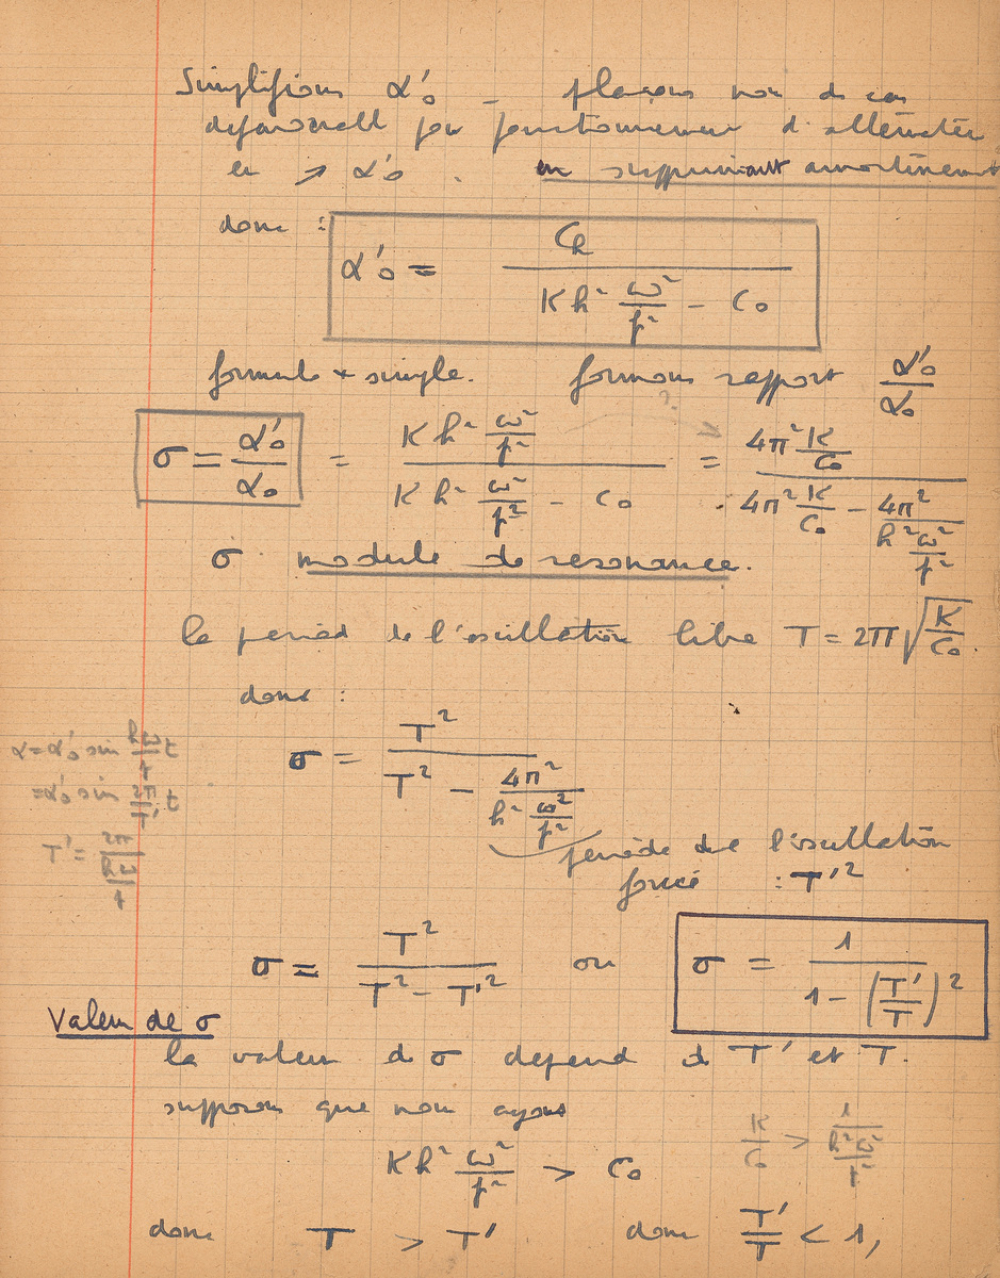 Simplifions α'₀ — plaçons nous ds cas
défavorable pr fonctionnement d'alternater
en ↗ α'₀ . en supprimant amortissement
donc :
α'₀ = Ch / (K h² ω²/p² - C₀)
formule + simple. formons rapport α'₀/α₀
σ = α'₀/α₀ = (K h² ω²/p²) / (K h² ω²/p² - C₀) = (4π² K/C₀) / (4π² K/C₀ - 4π²/(h² ω²/p²))
σ module de résonance.
la période de l'oscillation libre T = 2π √(K/C₀).
donc :
σ = T² / (T² - 4π²/(h² ω²/p²))
α = α'₀ sin (hω/p) t
= α'₀ sin (2π/T') t
T' = 2π/(hω/p)
période de l'oscillation
forcé : T'²
σ = T² / (T² - T'²) ou σ = 1 / (1 - (T'/T)²)
Valeur de σ
la valeur de σ dépend de T' et T.
supposons que nous ayons
K h² ω²/p² > C₀ K/C₀ > 1/(h² ω²/p²)
donc T > T' donc T'/T < 1,